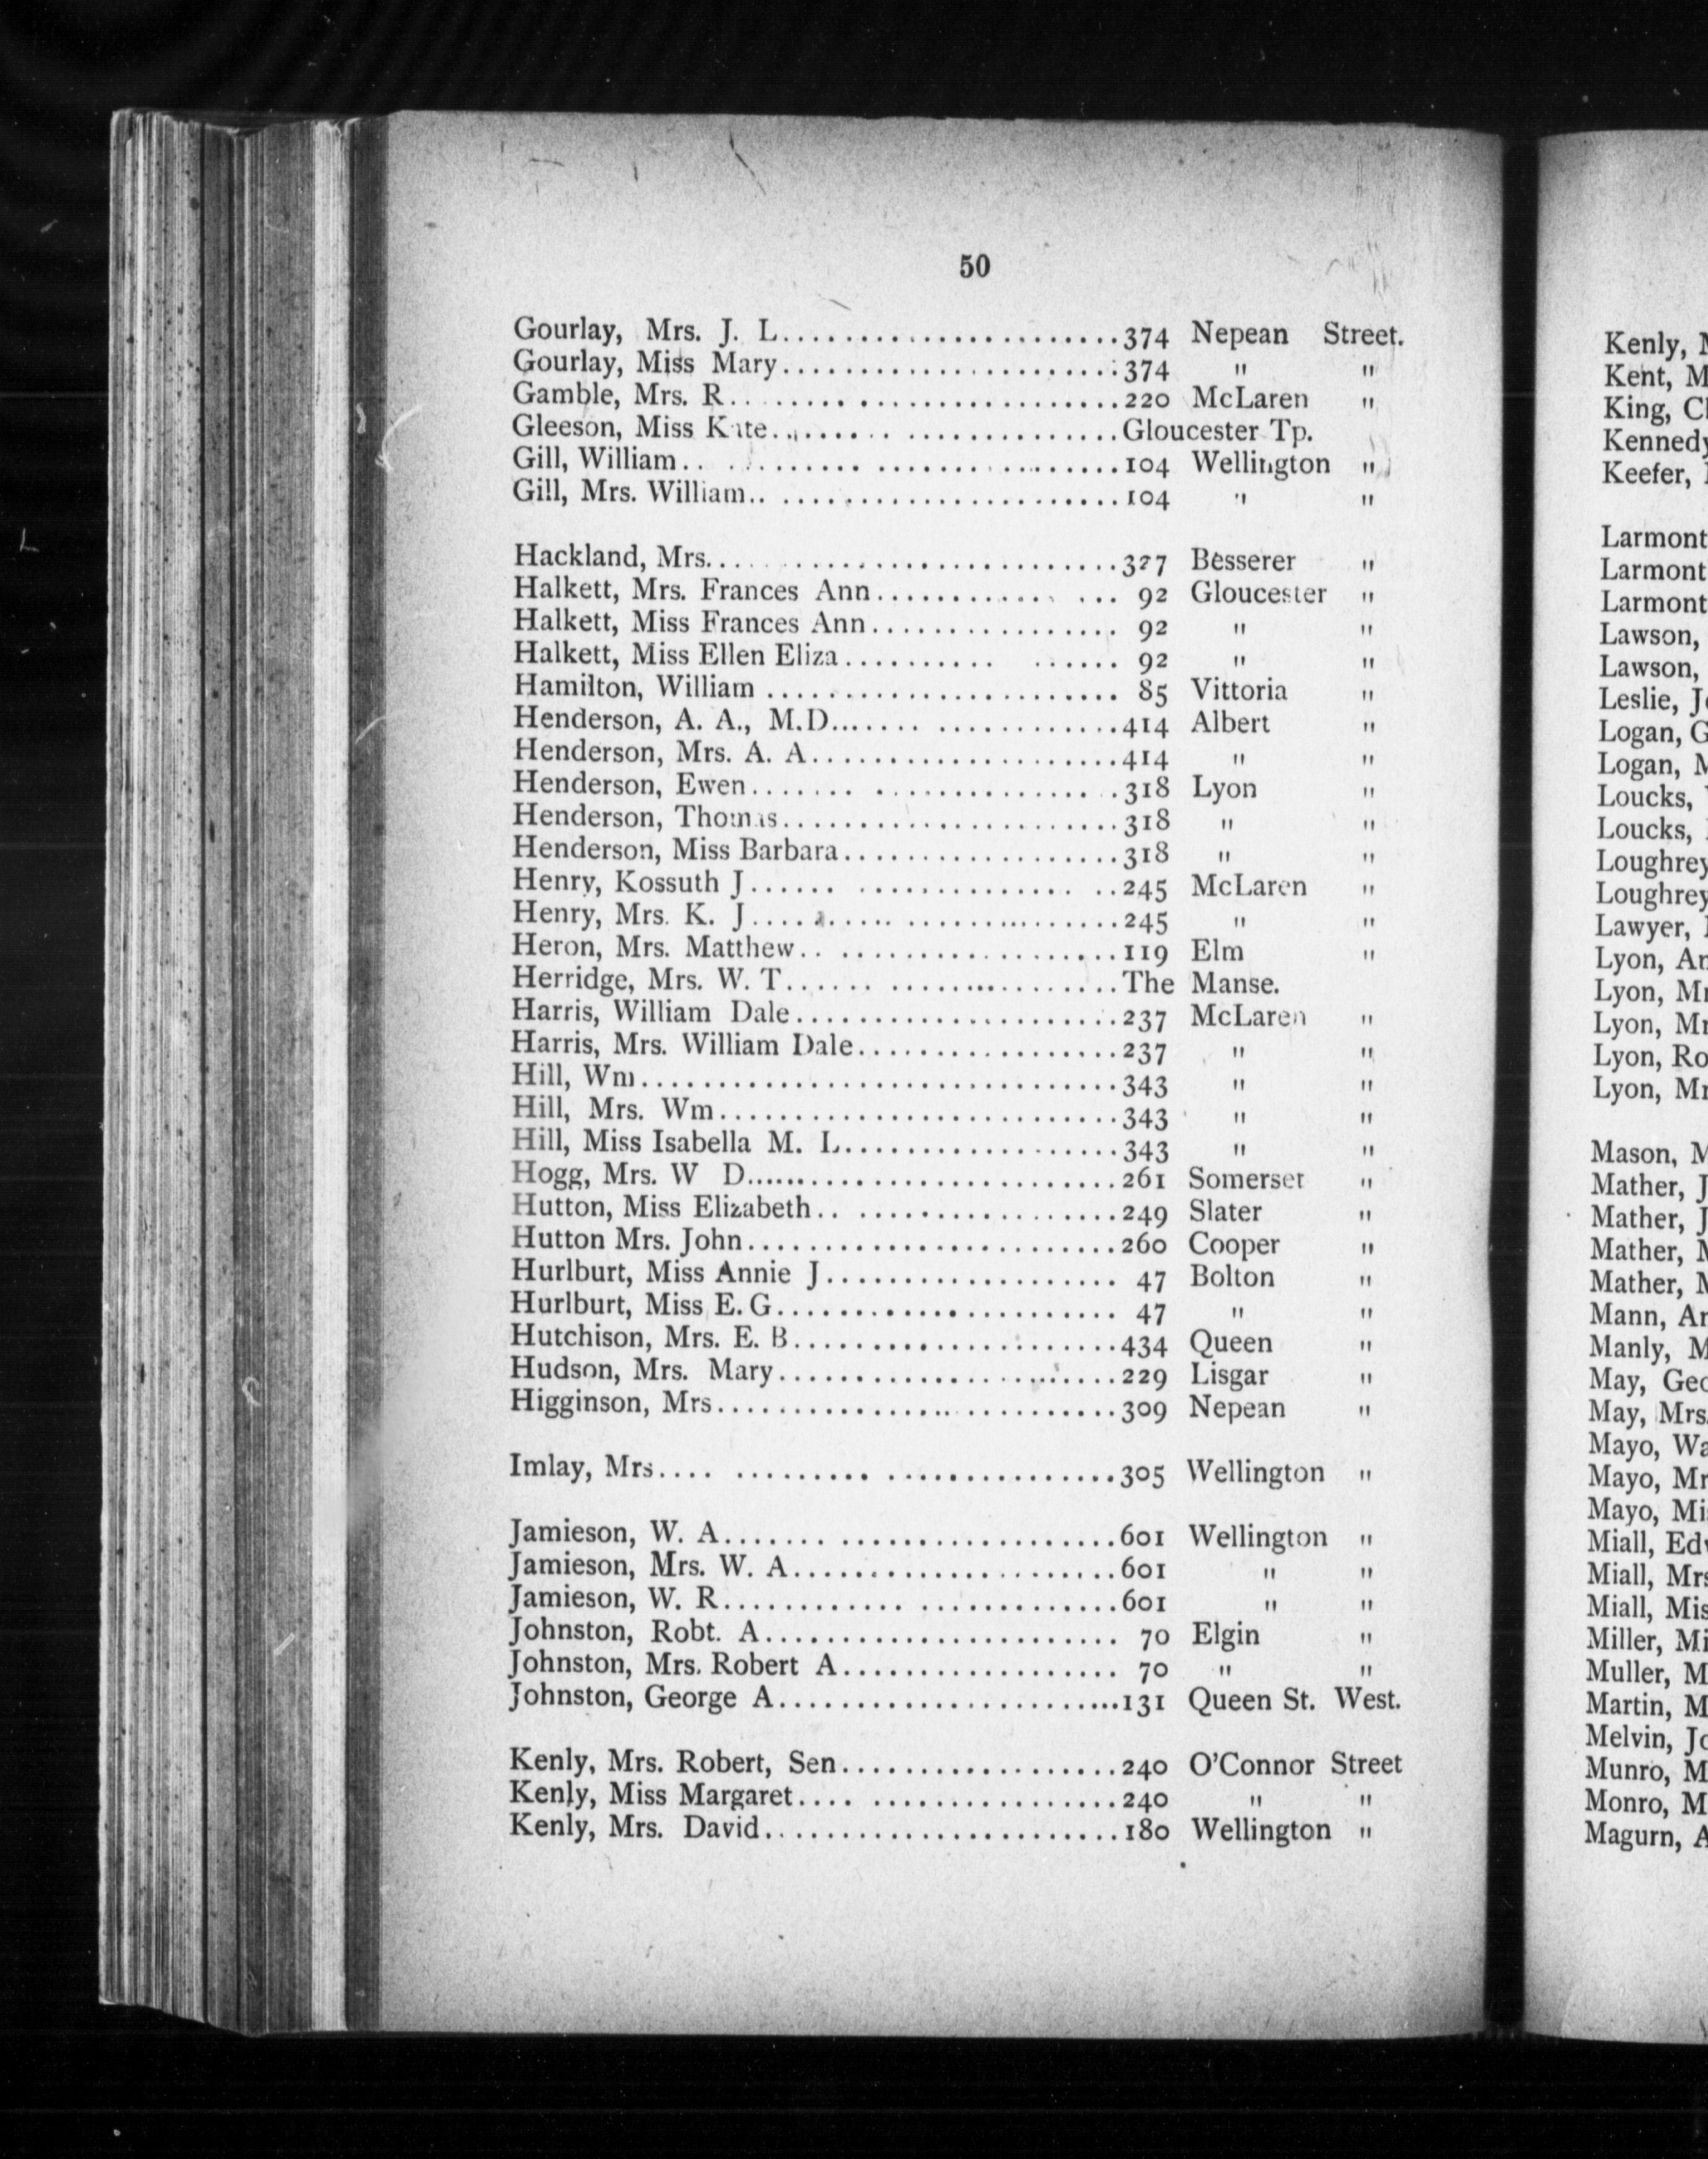 50
Gourlay, Mrs. J. L........................374 Nepean Street.
Gourlay, Miss Mary........................374 " "
Gamble, Mrs. R............................220 McLaren "
Gleeson, Miss Kate........................Gloucester Tp.
Gill, William.............................104 Wellington "
Gill, Mrs. William........................104 " "
Hackland, Mrs.............................327 Besserer "
Halkett, Mrs. Frances Ann................. 92 Gloucester "
Halkett, Miss Frances Ann................. 92 " "
Halkett, Miss Ellen Eliza................. 92 " "
Hamilton, William ........................ 85 Vittoria "
Henderson, A. A., M.D.....................414 Albert "
Henderson, Mrs. A. A......................414 " "
Henderson, Ewen...........................318 Lyon "
Henderson, Thomas.........................318 " "
Henderson, Miss Barbara...................318 " "
Henry, Kossuth J..........................245 McLaren "
Henry, Mrs. K. J..........................245 " "
Heron, Mrs. Matthew.......................119 Elm "
Herridge, Mrs. W. T.......................The Manse.
Harris, William Dale......................237 McLaren "
Harris, Mrs. William Dale.................237 " "
Hill, Wm..................................343 " "
Hill, Mrs. Wm.............................343 " "
Hill, Miss Isabella M. L..................343 " "
Hogg, Mrs. W D............................261 Somerset "
Hutton, Miss Elizabeth....................249 Slater "
Hutton Mrs. John..........................260 Cooper "
Hurlburt, Miss Annie J.................... 47 Bolton "
Hurlburt, Miss E. G....................... 47 " "
Hutchison, Mrs. E. B......................434 Queen "
Hudson, Mrs. Mary.........................229 Lisgar "
Higginson, Mrs............................309 Nepean "
Imlay, Mrs................................305 Wellington "
Jamieson, W. A............................601 Wellington "
Jamieson, Mrs. W. A.......................601 " "
Jamieson, W. R............................601 " "
Johnston, Robt. A......................... 70 Elgin "
Johnston, Mrs. Robert A................... 70 " "
Johnston, George A........................131 Queen St. West.
Kenly, Mrs. Robert, Sen...................240 O'Connor Street
Kenly, Miss Margaret......................240 " "
Kenly, Mrs. David.........................180 Wellington "
Kenly,
Kent,
King,
Kennedy
Keefer,
Larmont
Larmont
Larmont
Lawson,
Lawson,
Leslie,
Logan,
Logan,
Loucks,
Loucks,
Loughrey
Loughrey
Lawyer,
Lyon,
Lyon,
Lyon,
Lyon,
Lyon,
Mason,
Mather,
Mather,
Mather,
Mather,
Mann,
Manly,
May,
May, Mrs.
Mayo,
Mayo,
Mayo,
Miall,
Miall,
Miall,
Miller,
Muller,
Martin,
Melvin,
Munro,
Monro,
Magurn,